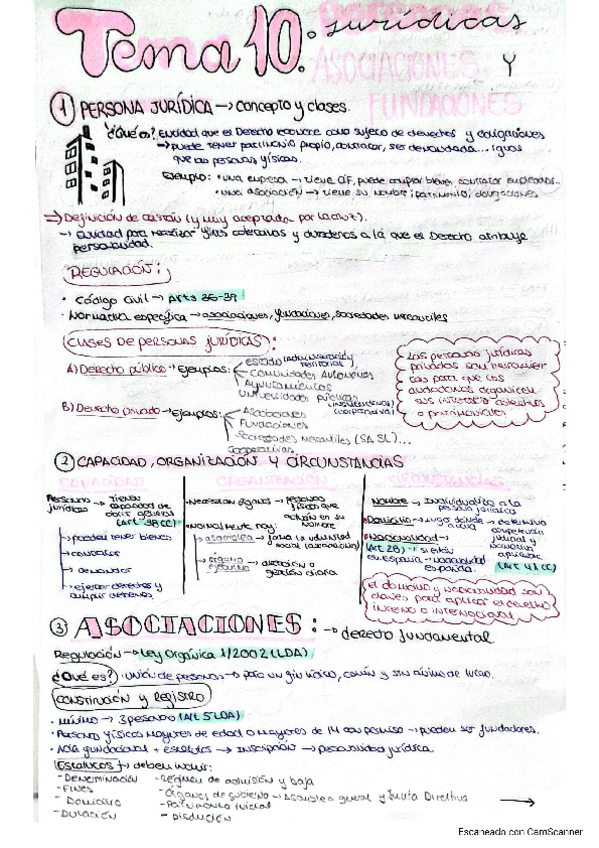 Tema 10: Personas jurídicas
ASOCIACIONES Y
FUNDACIONES
① PERSONA JURÍDICA → concepto y clases.
¿Qué es? Entidad que el Derecho reconoce como sujeto de derechos y obligaciones
→ puede tener patrimonio propio, contratar, ser demandada... igual
que las personas físicas.
Ejemplo: • una empresa → tiene CIF, puede comprar bienes, contratar empleados..
• una asociación → tiene su nombre, patrimonio, obligaciones
⇒ Definición de (y muy aceptada por la
→ entidad para realizar fines colectivos y duraderos a la que el Derecho atribuye
personalidad.
REGULACIÓN:
• Código Civil → arts 35-39
• Normativa específica → asociaciones, fundaciones, sociedades mercantiles
CLASES DE PERSONAS JURÍDICAS:
A) Derecho público → Ejemplos: Estado (administración territorial)
Comunidades Autónomas
Ayuntamientos
Universidades públicas (institucional)
B) Derecho privado → Ejemplos: Asociaciones (corporativa)
Fundaciones
Sociedades mercantiles (SA SL)...
Cooperativas.
Las personas jurídicas
privadas son
para que los
ciudadanos organicen
sus intereses
o patrimoniales
② CAPACIDAD, ORGANIZACIÓN Y CIRCUNSTANCIAS
CAPACIDAD
Personas jurídicas → Tienen
capacidad de
obrar general
(Art 38 CC)
→ pueden tener bienes
→ contratar
→ demandar
→ ejercer derechos y
cumplir deberes.
ORGANIZACIÓN
• Necesitan órganos → personas
físicas que
actúan en su
nombre
• Normalmente hay:
asamblea → forma la voluntad
social (asociación)
órgano → dirección o
gestión diaria
CIRCUNSTANCIAS
Nombre → Individualiza a la
persona jurídica
• Domicilio → lugar donde actúa
• Nacionalidad →
(Art 28) → si están
en España → nacionalidad
española.
→ determina
competencia
judicial y
normativa
aplicable
(Art 41 CC)
El domicilio y nacionalidad son
claves para aplicar el derecho
interno o internacional
③ ASOCIACIONES: → derecho fundamental
Regulación → Ley Orgánica 1/2002 (LDA)
¿Qué es? • Unión de personas → para un fin lícito, común y sin ánimo de lucro.
CONSTITUCIÓN Y REGISTRO
• Mínimo → 3 personas (Art 5 LDA)
• Personas físicas mayores de edad o mayores de 14 con permiso → pueden ser fundadores.
• Acta fundacional + estatutos → Inscripción → personalidad jurídica.
Estatutos → deben incluir:
- Denominación
- Fines
- Domicilio
- Duración
- Régimen de admisión y baja
- Órganos de gobierno → Asamblea general y Junta Directiva
- Patrimonio inicial
- Disolución
Escaneado con CamScanner